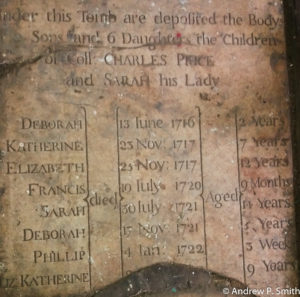 nder this Tomb are deposited the Body
Sons and 6 Daughters the Children
of Coll: CHARLES PRICE
and SARAH his Lady
DEBORAH 13 June 1716 2 Years
KATHERINE 23 Nov: 1717 7 Years
ELIZABETH 25 Nov: 1717 12 Years
FRANCIS 19 July 1720 9 Months
SARAH died 30 July 1721 Aged 14 Years
DEBORAH 15 Nov: 1721 Years
PHILLIP 4 Jan: 1722 3 Week
LIZ KATHERINE 9 Years
© Andrew P. Smith